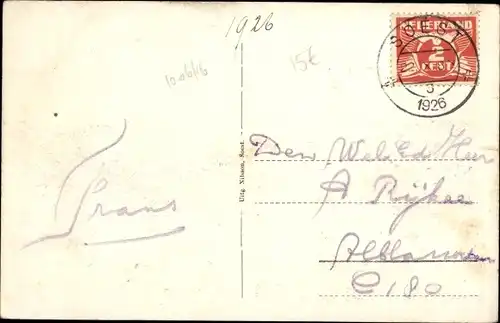 1926
15€
NEDERLAND
2 CENT
SOEST
1926
Uitg. Nilsson, Soest.
Den Wel.Ed Heer
A Rijkse
Alblasserdam
C 180
Frans